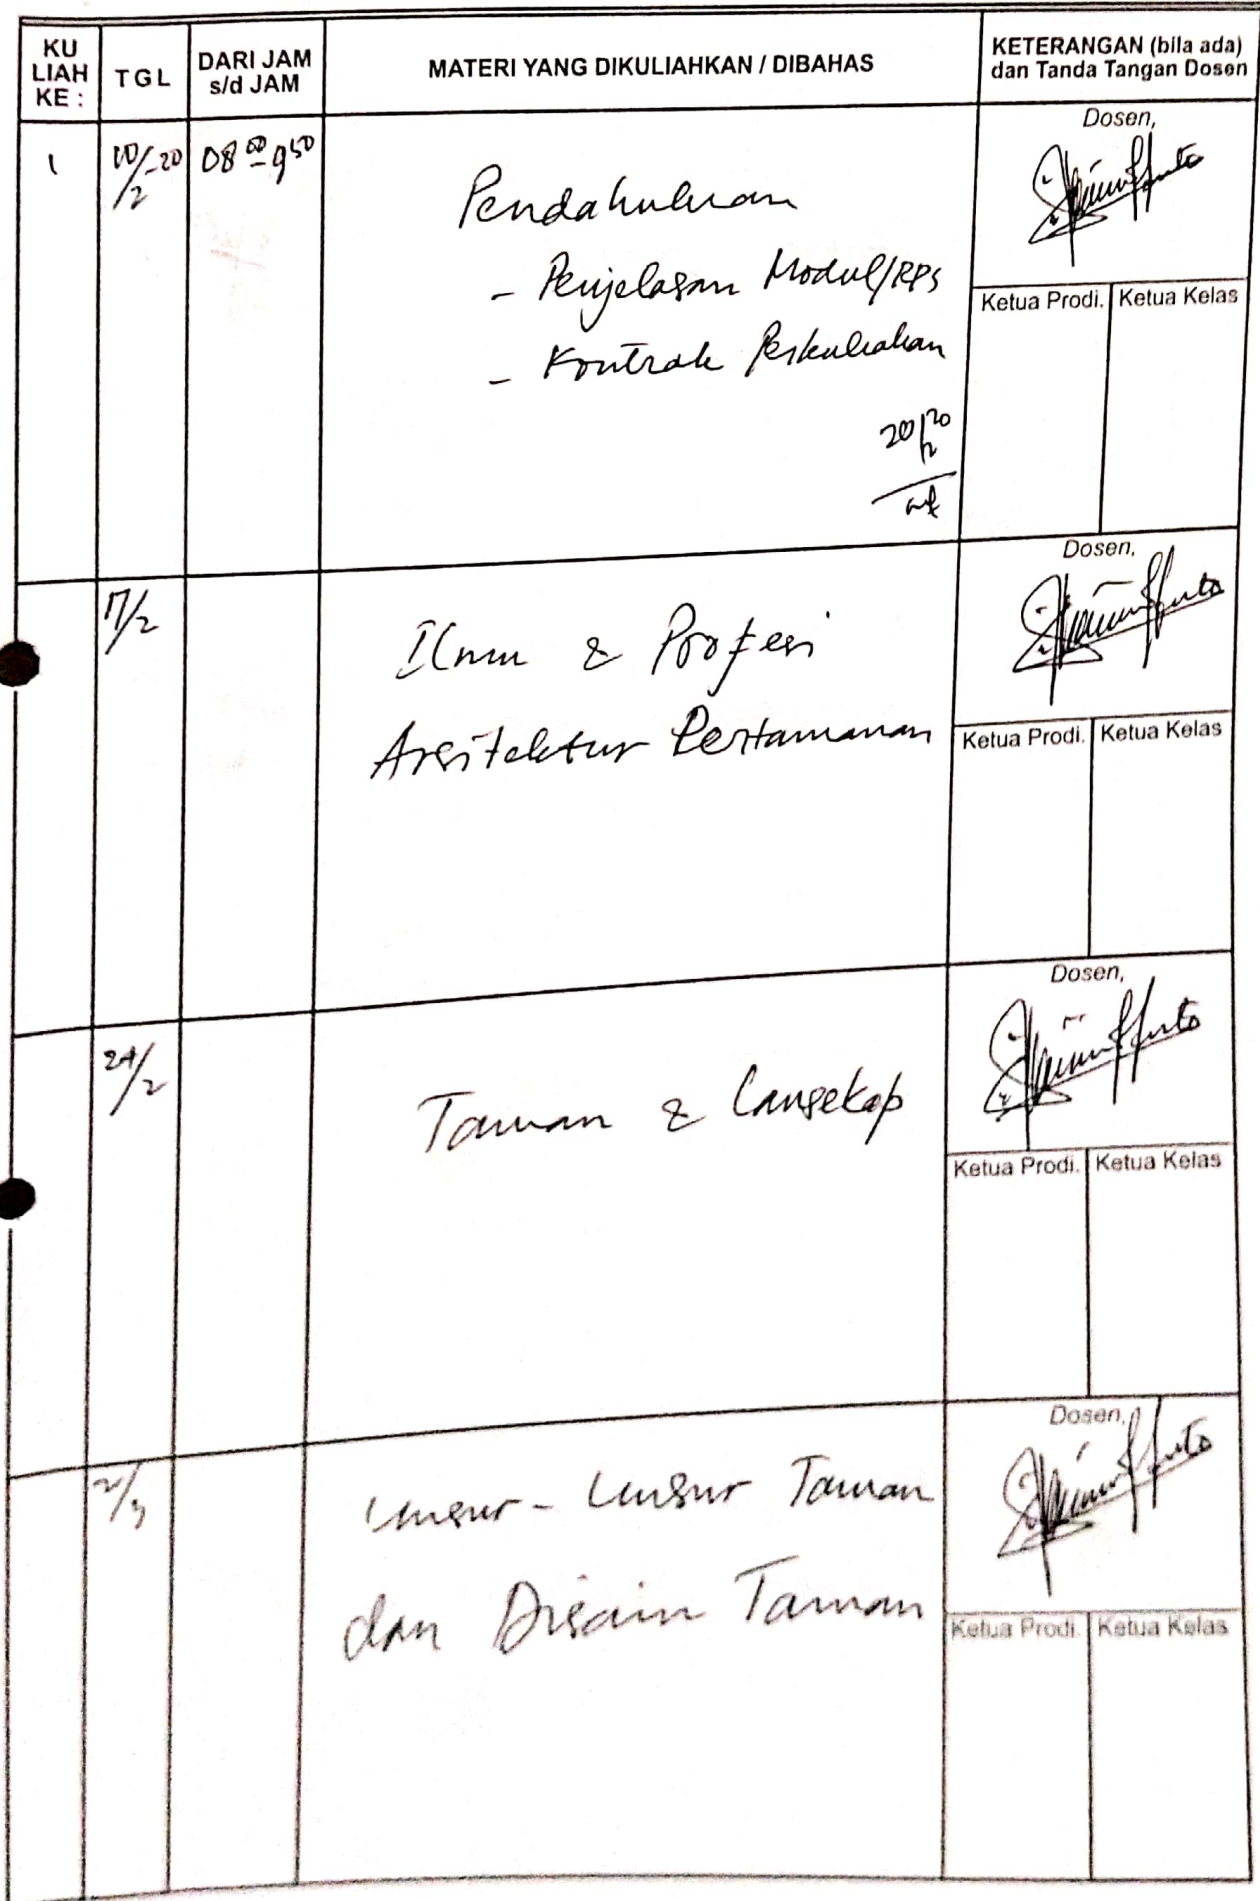 KU
LIAH
KE :
TGL
DARI JAM
s/d JAM
MATERI YANG DIKULIAHKAN / DIBAHAS
KETERANGAN (bila ada)
dan Tanda Tangan Dosen
1
10/2-20
08 00 - 9 50
Pendahuluan
- Penjelasan Modul/RPS
- Kontrak Perkuliahan
20/2 20
Dosen,
Ketua Prodi.
Ketua Kelas
17/2
Ilmu & Profesi
Arsitektur Pertamanan
Dosen,
Ketua Prodi.
Ketua Kelas
24/2
Taman & Lansekap
Dosen,
Ketua Prodi.
Ketua Kelas
2/3
Unsur - Unsur Taman
dan Disain Taman
Dosen,
Ketua Prodi.
Ketua Kelas